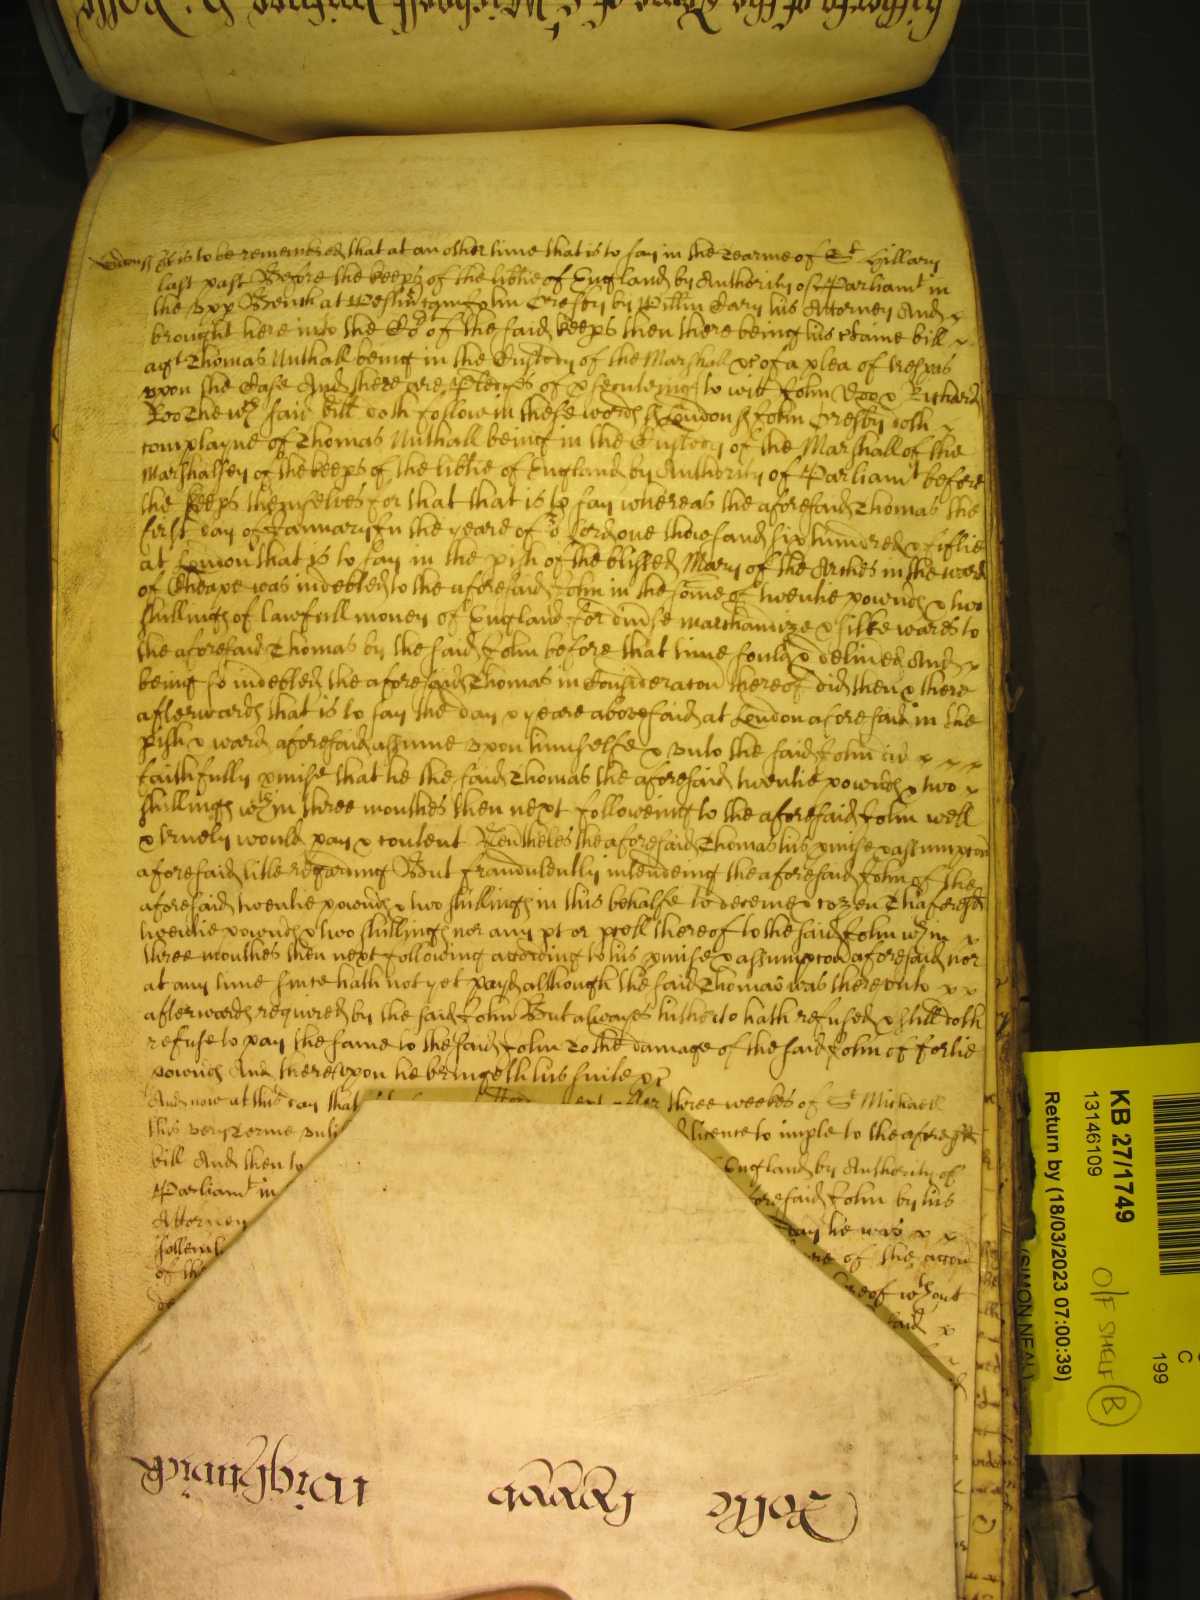 London ss It is to be remembred that at an other time that is to say in the Tearme of St Hillary
last past Before the keeps of the libtie of England by Authority of Parliamt in
the upp Bench at Westm came John Cresby by Willm Cary his Attorney And
brought here into the Co of the said keeps then there being his c̃taine bill
agt Thomas Nuthall being in the Custody of the Marshall &c of a plea of trespas
upon the Case And there are Pledges of pseculeing to witt John Doo & Richard
Roo The wch said bill doth follow in these words ss London ss John Cresby doth
complayne of Thomas Nuthall being in the Custody of the Marshall of the
Marshalsey of the keeps of the libtie of England by Authority of Parliamt before
the keeps themselves for that that is to say whereas the aforesaid Thomas the
first day of January In the yeare of or Lord one thowsand six hundred & fiftie
at London that is to say in the pish of the blessed Mary of the Arches in the ward
of Cheape was indebted to the aforesaid John in the some of twentie pownds & two
shillings of lawfull money of England for divse marchandize & silke wares to
the aforesaid Thomas by the said John before that time sould & delived And
being so indebted the aforesaid Thomas in Consideracon thereof did then & there
afterwards that is to say the day & yeare abovesaid at London aforesaid in the
pish & ward aforesaid assume upon himselfe & unto the said John did
faithfully pmise that he the said Thomas the aforesaid twentie pownds & two
shillings wthin three monthes then next followeing to the aforesaid John well
& truely would pay & content Nevtheles the aforesaid Thomas his pmise & assumpcon
aforesaid litle regarding But fraudulently intendeing the aforesaid John of the
aforesaid twentie pownds & two shillings in this behalfe to deceive & cozen The aforesd
twentie pownds & two shillings nor any pt or pcell thereof to the said John wthin
three monthes then next following according to his pmise & assumpcon aforesaid nor
at any time since hath not yet payd although the said Thomas was thereunto
afterwards required by the said John But alwayes hitherto hath refused & still doth
refuse to pay the same to the said John To the damage of the said John of fortie
pownds And thereupon he bringeth his suite &c
And now at this day that three weekes of St Michaell
this very Terme untill licence to imple to the aforesd
bill And then to England by Authority of
Parliamt in aforesaid John by his
Attorney day he was
sollemly of the accon
of the thereof wthout
said
KB 27/1749
13146109
Return by (18/03/2023 07:00:39)
(SIMON NEAL)
C
199
O/F SHELF B